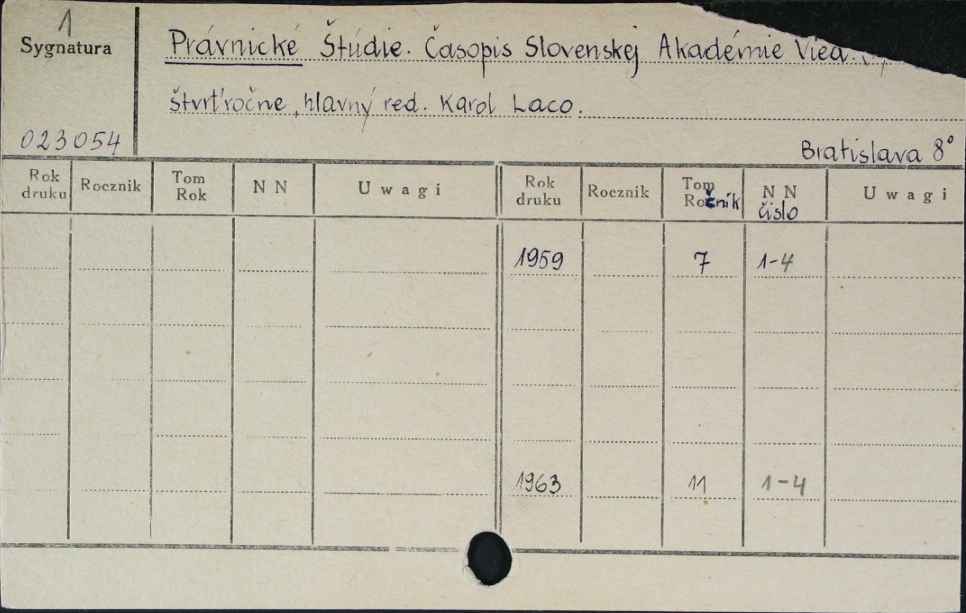 1
Sygnatura
Právnické Štúdie. Časopis Slovenskej Akadémie Vied.
štvrťročne, hlavný red. Karol Laco.
023054
Bratislava 8°
Rok druku Rocznik Tom Rok N N Uwagi Rok druku Rocznik Tom Ročník N N číslo Uwagi
1959 7 1-4
1963 11 1-4